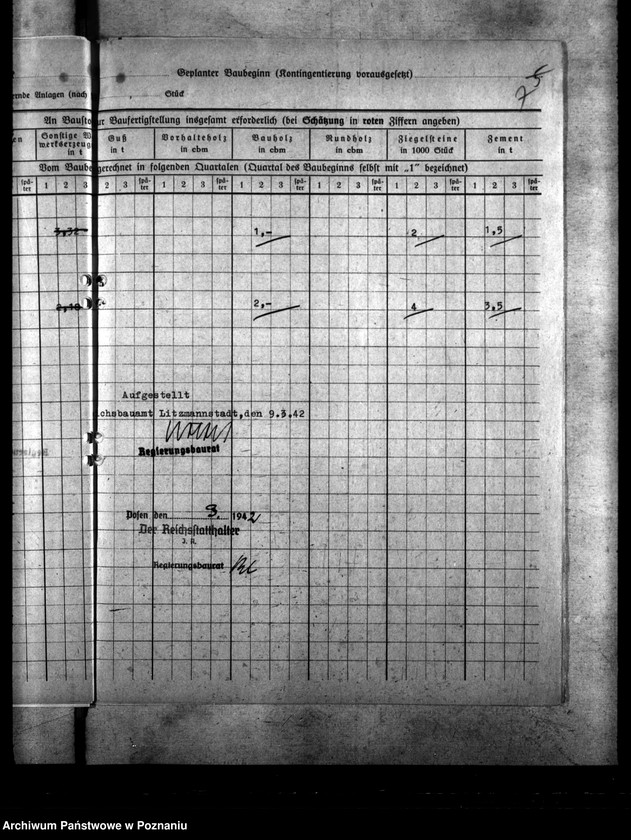 Geplanter Baubeginn (Kontingentierung vorausgesetzt)
Anlagen (nach Stück
An Bausto ur Baufertigstellung insgesamt erforderlich (bei Schätzung in roten Ziffern angeben)
en Sonstige W Guß Vorhalteholz Bauholz Rundholz Ziegelsteine Zement
werkserzeug
in t in t in cbm in cbm in cbm in 1000 Stück in t
Vom Baube gerechnet in folgenden Quartalen (Quartal des Baubeginns selbst mit „1" bezeichnet)
spä-ter 1 2 3 2 3 spä-ter 1 2 3 spä-ter 1 2 3 spä-ter 1 2 3 spä-ter 1 2 3 spä-ter 1 2 3 spä-ter
3,32 1,- 2 1,5
2,10 2,- 4 3,5
Aufgestellt
chsbauamt Litzmannstadt,den 9.3.42
Regierungsbaurat
Posen den 3. 1942
Der Reichsstatthalter
J. A.
Regierungsbaurat
Archiwum Państwowe w Poznaniu